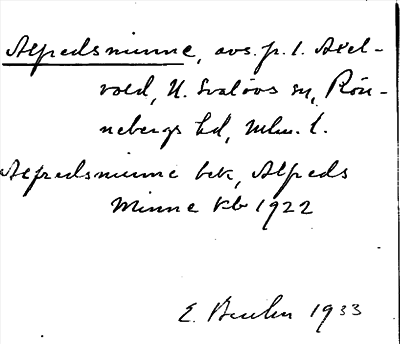 Alfredsminne, avs. fr. 1. Axel-
vold, N. Svalövs sn, Rön-
nebergs hd, Mlm. l.
Alfredsminne bek, Alfreds
Minne Kb 1922
E. 1933